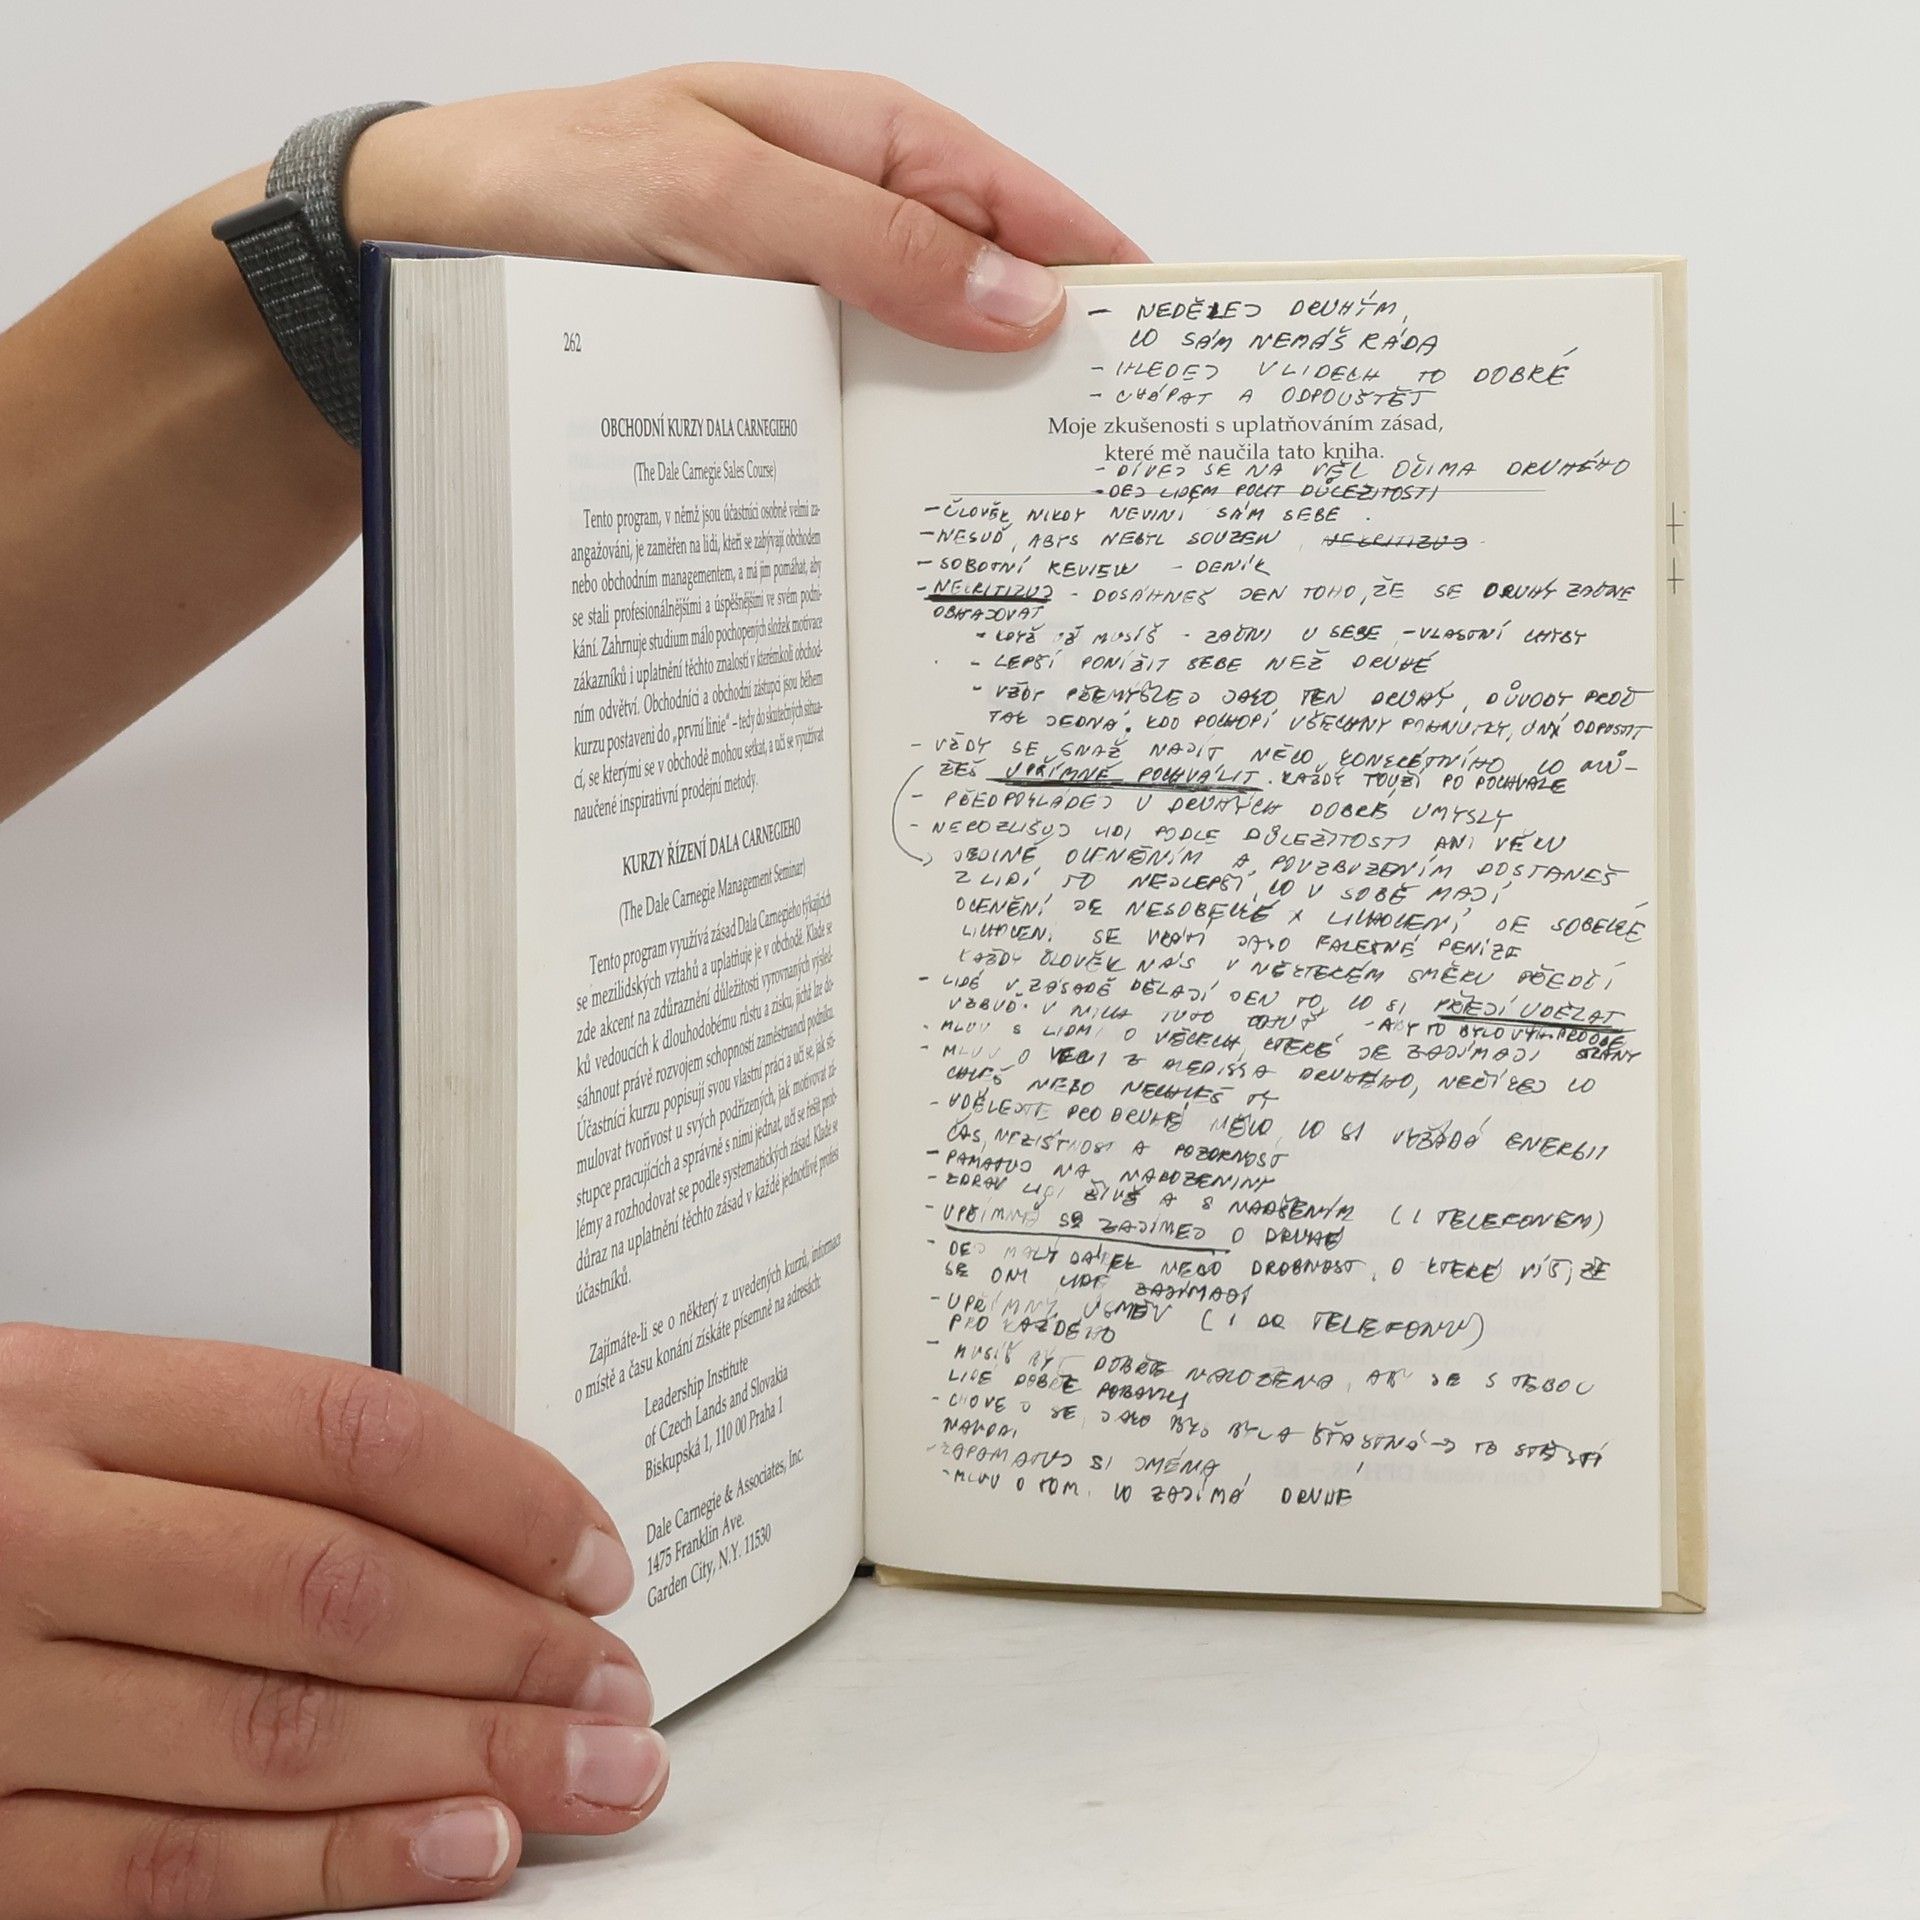 262
OBCHODNÍ KURZY DALA CARNEGIEHO
(The Dale Carnegie Sales Course)
Tento program, v němž jsou účastníci osobně velmi za-
angažováni, je zaměřen na lidi, kteří se zabývají obchodem
nebo obchodním managementem, a má jim pomáhat, aby
se stali profesionálnějšími a úspěšnějšími ve svém podni-
kání. Zahrnuje studium málo pochopených složek motivace
zákazníků i uplatnění těchto znalostí v kterémkoli obchod-
ním odvětví. Obchodníci a obchodní zástupci jsou během
kurzu postaveni do „první linie“ – tedy do skutečných situa-
cí, se kterými se v obchodě mohou setkat, a učí se využívat
naučené inspirativní prodejní metody.
KURZY ŘÍZENÍ DALA CARNEGIEHO
(The Dale Carnegie Management Seminar)
Tento program využívá zásad Dala Carnegieho týkajících
se mezilidských vztahů a uplatňuje je v obchodě. Klade se
zde akcent na zdůraznění důležitosti vyrovnaných výsled-
ků vedoucích k dlouhodobému růstu a zisku, jichž lze do-
sáhnout právě rozvojem schopností zaměstnanců podniku.
Účastníci kurzu popisují svou vlastní práci a učí se, jak sti-
mulovat tvořivost u svých podřízených, jak motivovat zá-
stupce pracujících a správně s nimi jednat, učí se řešit prob-
lémy a rozhodovat se podle systematických zásad. Klade se
důraz na uplatnění těchto zásad v každé jednotlivé profesi
účastníků.
Zajímáte-li se o některý z uvedených kurzů, informace
o místě a času konání získáte písemně na adresách:
Leadership Institute
of Czech Lands and Slovakia
Biskupská 1, 110 00 Praha 1
Dale Carnegie & Associates, Inc.
1475 Franklin Ave.
Garden City, N.Y. 11530
– NEDĚLEJ DRUHÝM,
CO SÁM NEMÁŠ RÁDA
– HLEDEJ V LIDECH TO DOBRÉ
– CHÁPAT A ODPOUŠTĚT
Moje zkušenosti s uplatňováním zásad,
které mě naučila tato kniha.
– DÍVEJ SE NA VĚC OČIMA DRUHÉHO
– DEJ LIDEM POCIT DŮLEŽITOSTI
– ČLOVĚK NIKDY NEVINÍ SÁM SEBE.
– NESUĎ, ABYS NEBYL SOUZEN, NEKRITIZUJ
– SOBOTNÍ REVIEW – DENÍK
– NEKRITIZUJ – DOSÁHNEŠ JEN TOHO, ŽE SE DRUHÝ ZAČNE
OBHAJOVAT
– KDYŽ UŽ MUSÍŠ – ZAČNI U SEBE – VLASTNÍ CHYBY
– LEPŠÍ PONÍŽIT SEBE NEŽ DRUHÉ
– VŽDY PŘEMÝŠLEJ JAKO TEN DRUHÝ, DŮVODY PROČ
TAK JEDNÁ. KDO POCHOPÍ VŠECHNY POHNUTKY, UMÍ ODPUSTIT
– VŽDY SE SNAŽ NAJÍT NĚCO KONKRÉTNÍHO CO MŮ–
ŽEŠ UPŘÍMNĚ POCHVÁLIT. KAŽDÝ TOUŽÍ PO POCHVALE
– PŘEDPOKLÁDEJ U DRUHÝCH DOBRÉ ÚMYSLY
– NEROZLIŠUJ LIDI PODLE DŮLEŽITOSTI ANI VĚKU
JEDINĚ OCENĚNÍM A POVZBUZENÍM DOSTANEŠ
Z LIDÍ TO NEJLEPŠÍ, CO V SOBĚ MAJÍ
OCENĚNÍ JE NESOBECKÉ X LICHOCENÍ JE SOBECKÉ
LICHOCENÍ SE VRÁTÍ JAKO FALEŠNÉ PENÍZE
KAŽDÝ ČLOVĚK NÁS V NĚKTERÉM SMĚRU PŘEDČÍ
– LIDÉ V ZÁSADĚ DĚLAJÍ JEN TO, CO SI PŘEJÍ UDĚLAT
VZBUĎ V NICH TUTO TOUHU – ABY TO BYLO PRO OBĚ
– MLUV S LIDMI O VĚCECH, KTERÉ JE ZAJÍMAJÍ STRANY
– MLUV O VĚCI Z HLEDISKA DRUHÉHO, NEŘÍKEJ CO
CHCEŠ NEBO NECHCEŠ TY
– UDĚLEJTE PRO DRUHÉ NĚCO, CO SI VYŽÁDÁ ENERGII
ČAS, NEZIŠTNOST A POZORNOST
– PAMATUJ NA NAROZENINY
– ZDRAV LIDI ŽIVĚ A S NADŠENÍM (I TELEFONEM)
– UPŘÍMNĚ SE ZAJÍMEJ O DRUHÉ
– DEJ MALÝ DÁREK NEBO DROBNOST, O KTERÉ VÍŠ, ŽE
SE ONI LIDÉ ZAJÍMAJÍ
– UPŘÍMNÝ ÚSMĚV (I DO TELEFONU)
PRO KAŽDÉHO
– MUSÍŠ BÝT DOBŘE NALOŽENA, ABY SE S TEBOU
LIDÉ DOBŘE POBAVILI
– CHOVEJ SE, JAKO BYS BYLA ŠŤASTNÁ → TO ŠTĚSTÍ
– ZAPAMATUJ SI JMÉNA
– MLUV O TOM, CO ZAJÍMÁ DRUHÉ